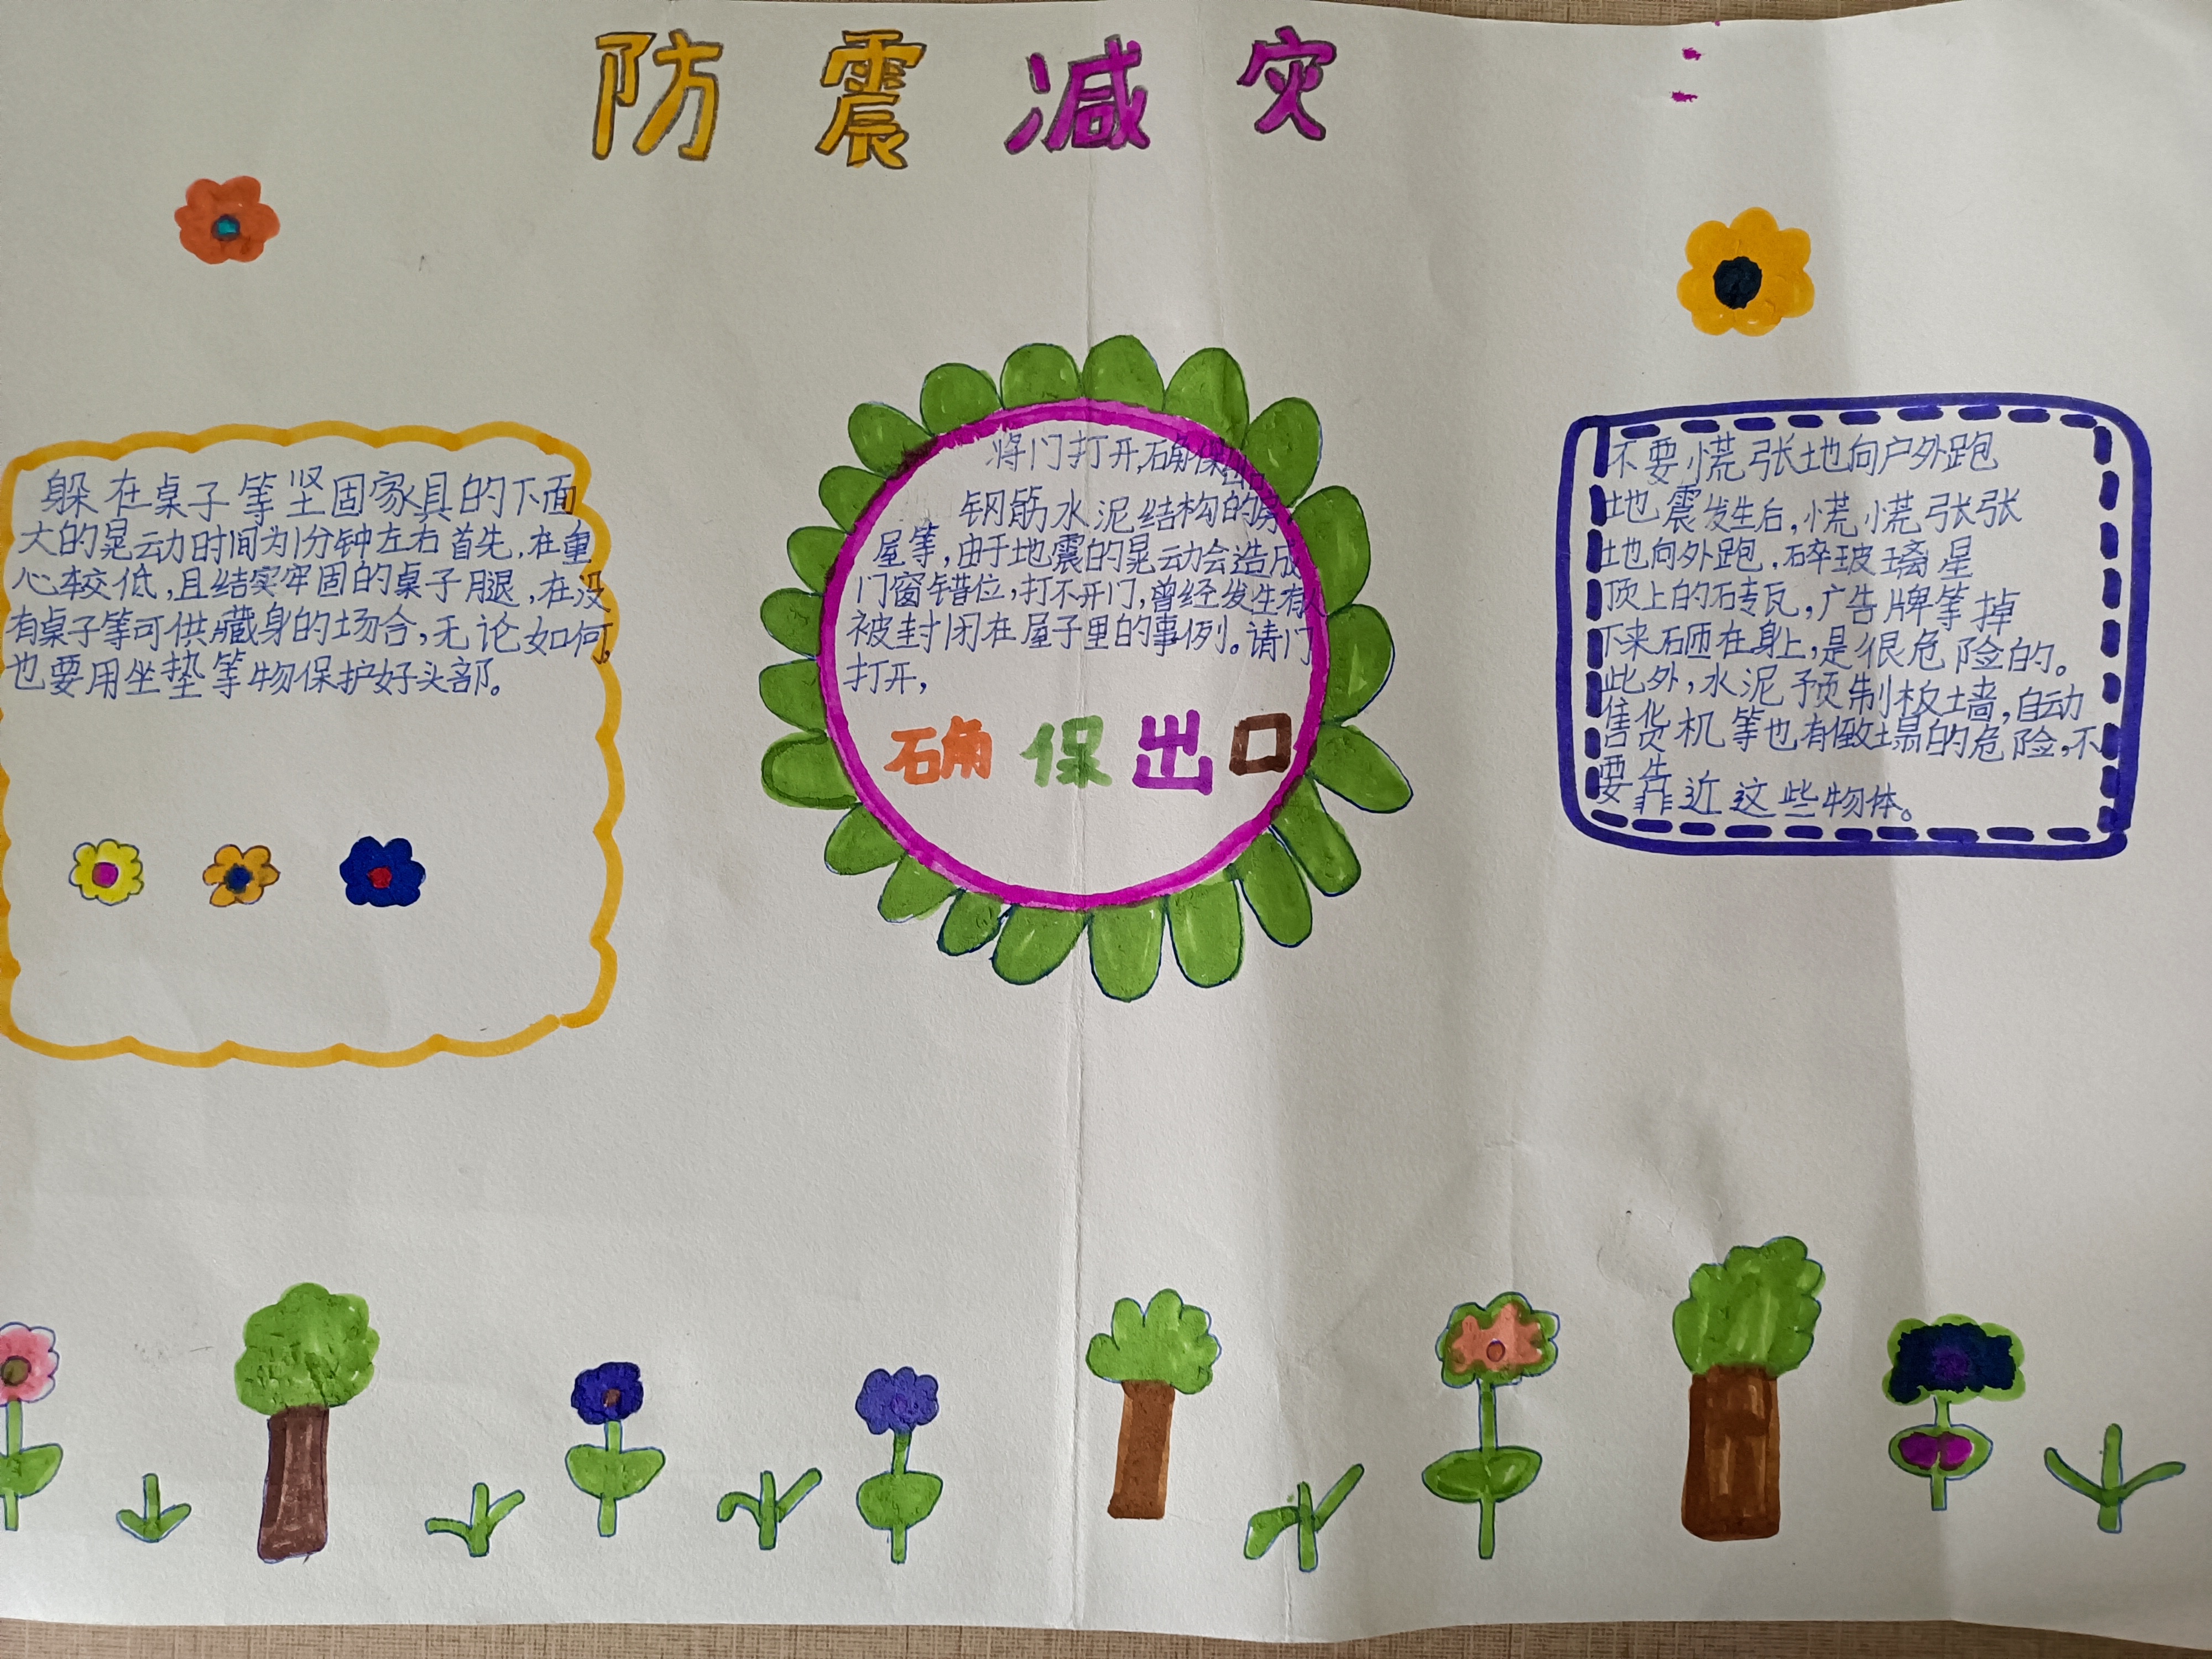 防震减灾
躲在桌子等坚固家具的下面
大的晃动时间为1分钟左右首先,在重
心较低,且结实牢固的桌子腿,在没
有桌子等可供藏身的场合,无论如何,
也要用坐垫等物保护好头部。
将门打开,确保出
钢筋水泥结构的房
屋等,由于地震的晃动会造成
门窗错位,打不开门,曾经发生有
被封闭在屋子里的事例。请门
打开,
确保出口
不要慌张地向户外跑
地震发生后,慌慌张张
地向外跑.碎玻璃星
顶上的砖瓦,广告牌等掉
下来砸在身上,是很危险的。
此外,水泥予页制板墙,自动
售货机等也有塌的危险,不
要靠近这些物体。